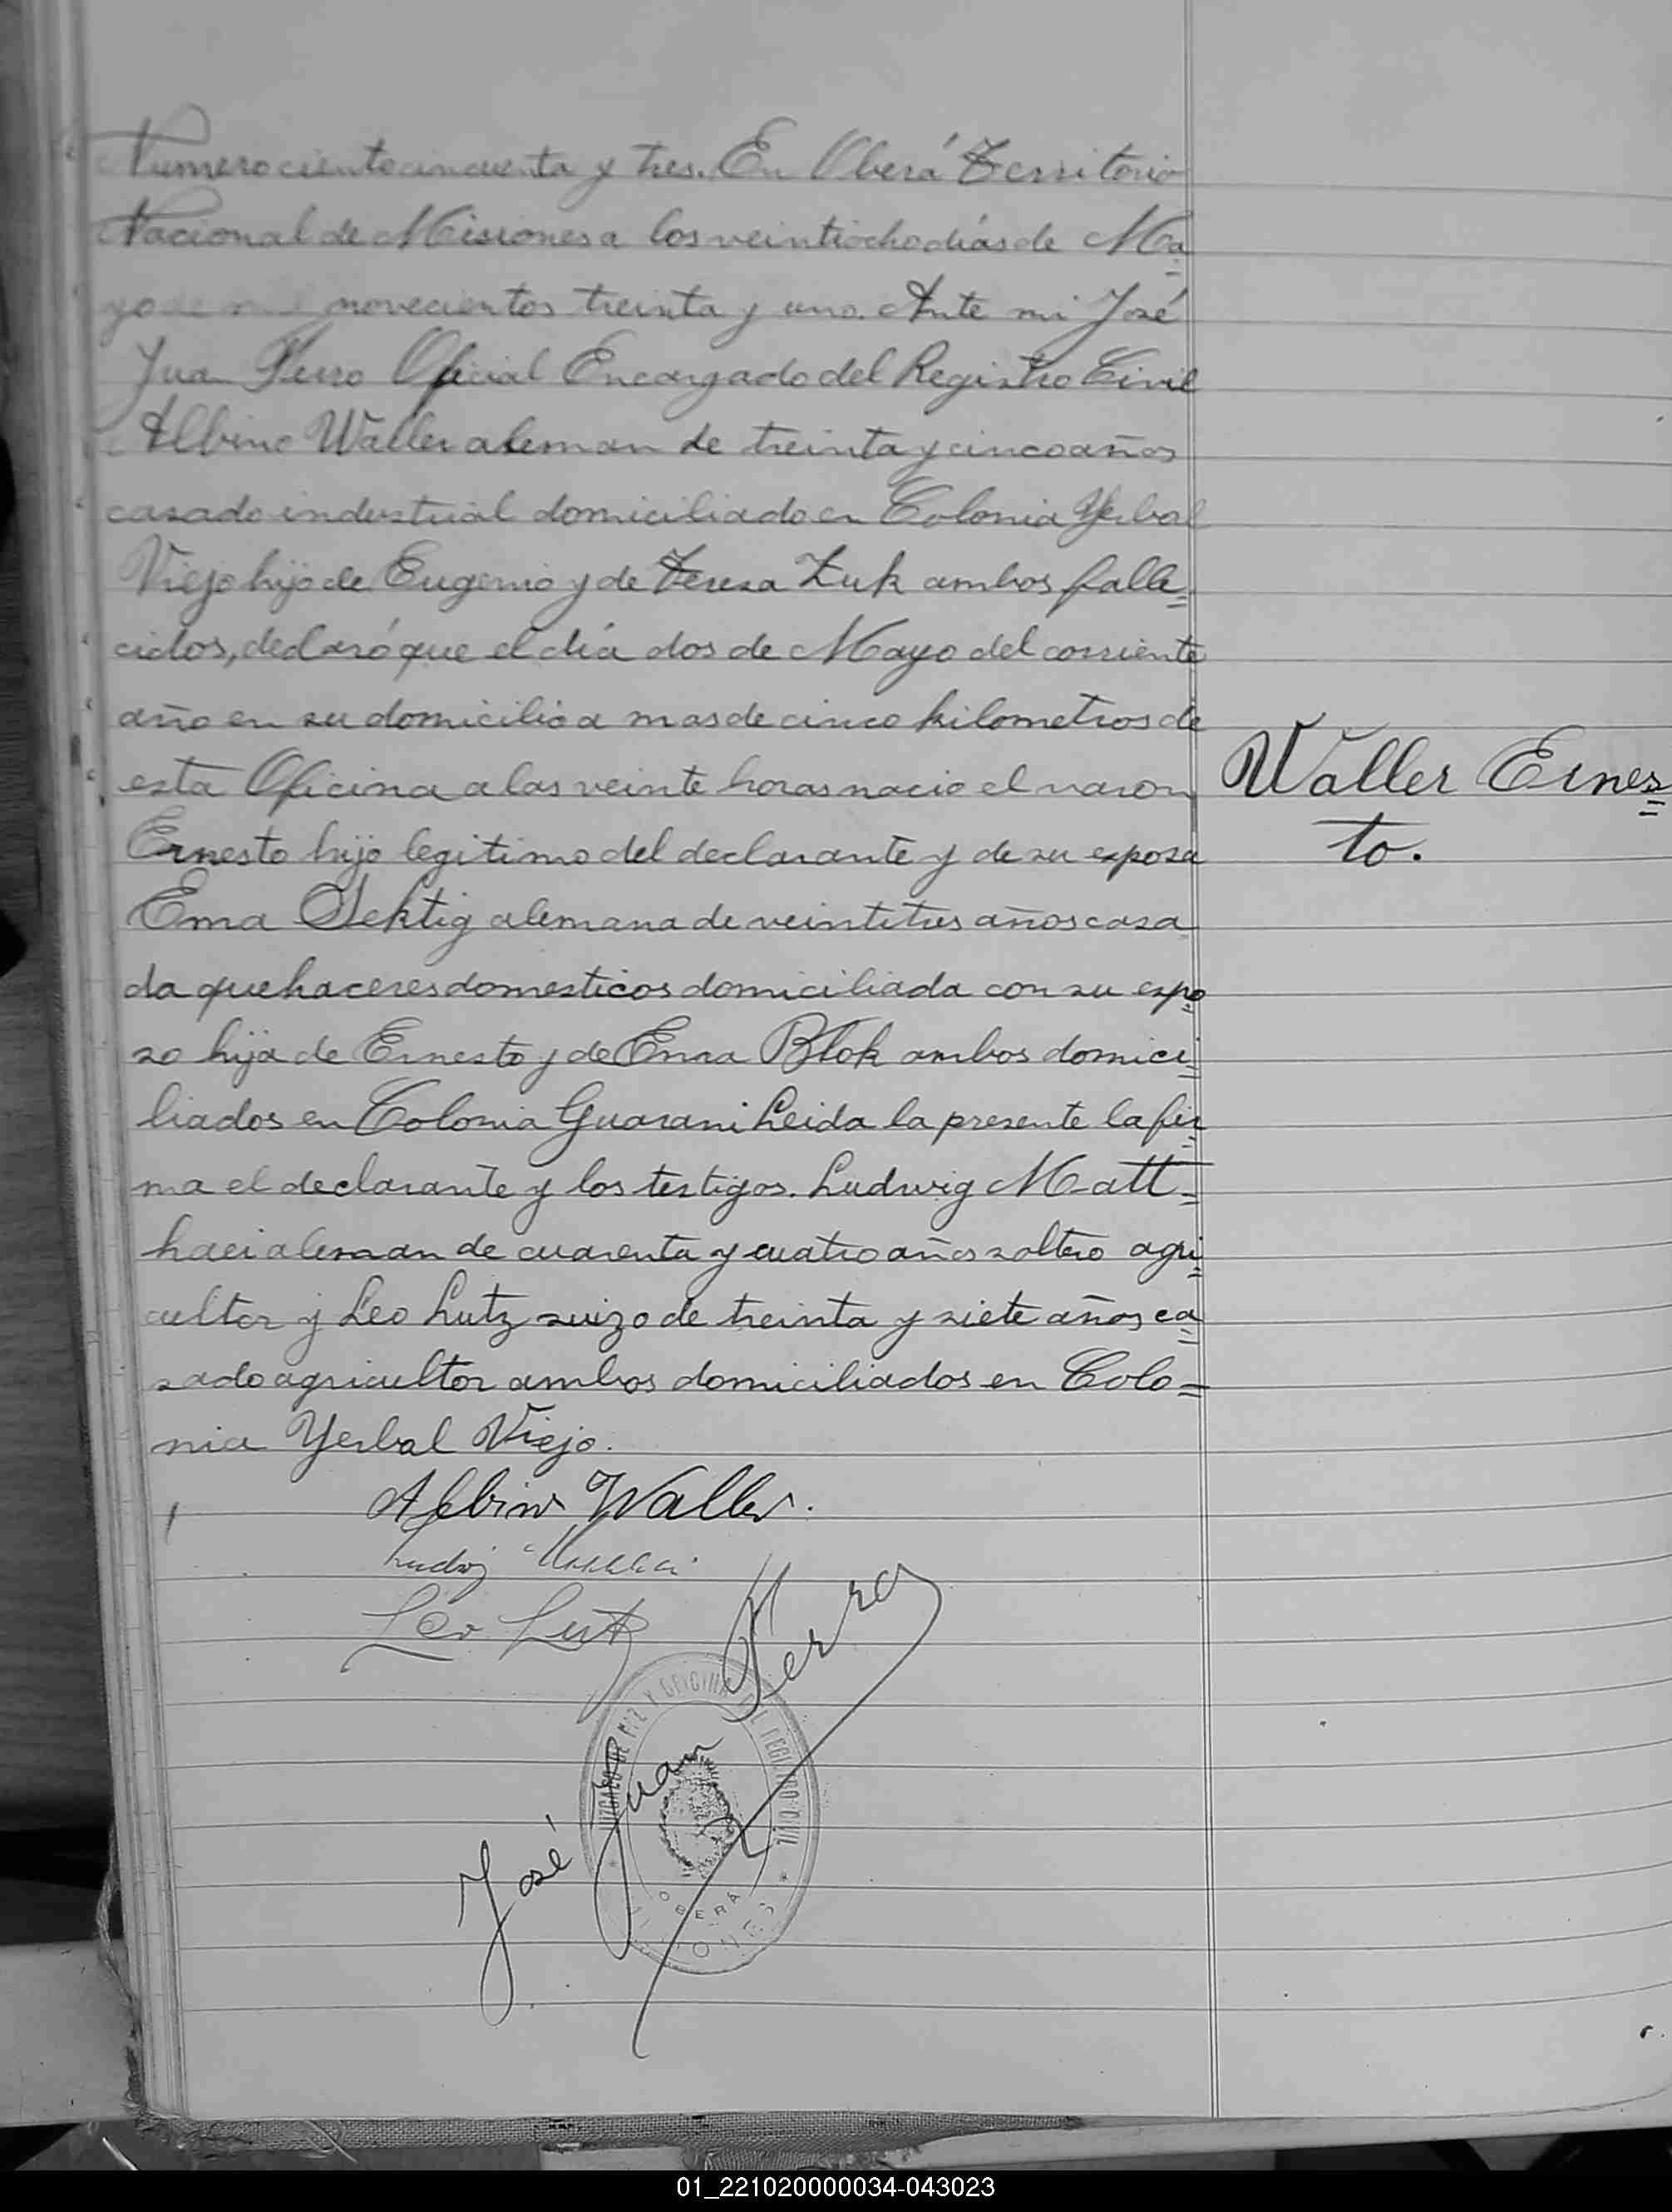 Numero ciento cincuenta y tres. En Oberá Territorio
Nacional de Misiones a los veintiocho dias de Ma=
yo de mil novecientos treinta y uno. Ante mi José
Juan Ferro Oficial Encargado del Registro Civil
Albino Waller aleman de treinta y cinco años
casado industrial domiciliado en Colonia Yerbal
Viejo hijo de Eugenio y de Teresa Zuk ambos falle=
cidos, declaró que el día dos de Mayo del corriente
año en su domicilio a mas de cinco kilometros de
esta Oficina a las veinte horas nacio el varon
Waller Ernes=
to.
Ernesto hijo legitimo del declarante y de su esposa
Ema Sektig alemana de veintitres años casa
da quehaceres domesticos domiciliada con su espo=
so hija de Ernesto y de Enna Blok ambos domici=
liados en Colonia Guarani Leida la presente la fir=
ma el declarante y los testigos. Ludwig Matt=
haei aleman de cuarenta y cuatro años soltero agri=
cultor y Leo Lutz suizo de treinta y siete años ca=
sado agricultor ambos domiciliados en Colo=
nia Yerbal Viejo.
Albino Waller.
Ludwig
Leo Lutz
José Juan Ferro
JUZGADO DE PAZ Y OFICINA DEL REGISTRO CIVIL
OBERÁ
MISIONES
01_221020000034-043023